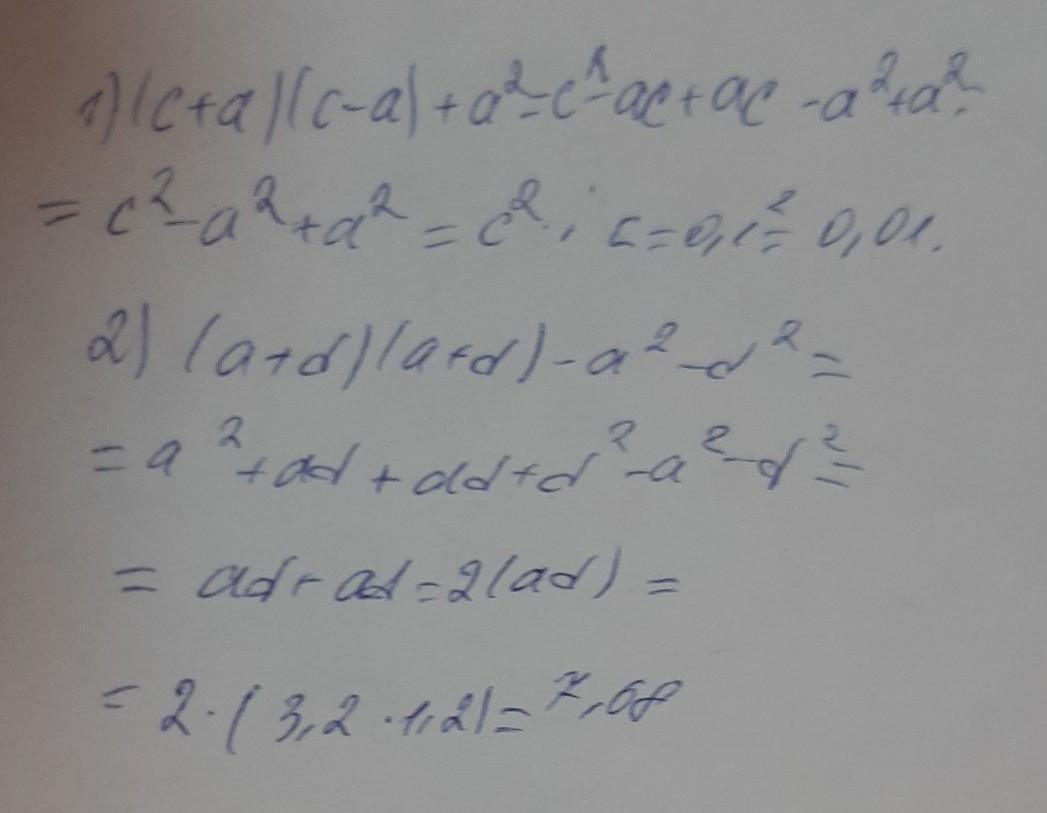 1) (c+a)(c-a)+a²=c²-ac+ac-a²+a²=
=c²-a²+a²=c². ; c=0,1²=0,01.
2) (a+d)(a+d)-a²-d²=
=a²+ad+ad+d²-a²-d²=
=ad+ad=2(ad)=
=2·(3,2·1,2)=7,68